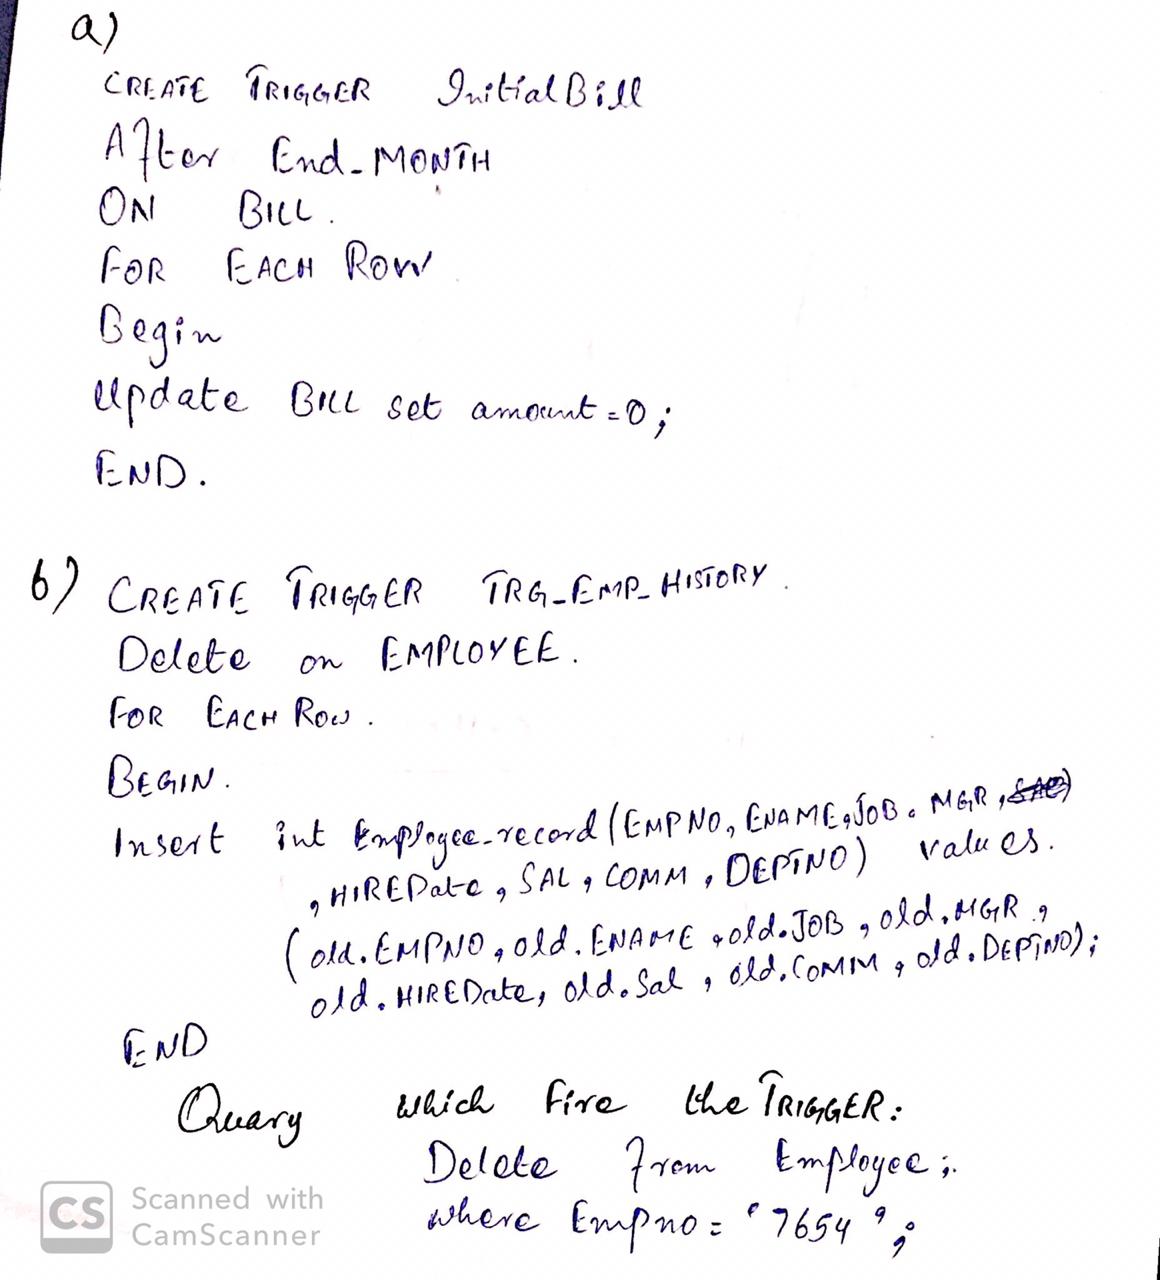 a)
CREATE TRIGGER InitialBill
After End_MONTH
ON BILL.
FOR EACH Row
Begin
Update BILL set amount=0;
END.
b) CREATE TRIGGER TRG_EMP_HISTORY.
Delete on EMPLOYEE.
FOR EACH Row.
BEGIN.
Insert int Employee_record (EMPNO, ENAME, JOB, MGR, SAL)
, HIREDate, SAL, COMM, DEPTNO) values.
(old.EMPNO, old.ENAME, old.JOB, old.MGR,
old.HIREDate, old.Sal, old.COMM, old.DEPTNO);
END
Quary which fire the TRIGGER:
Delete from Employee;.
where Empno = '7654';
CS Scanned with
CamScanner